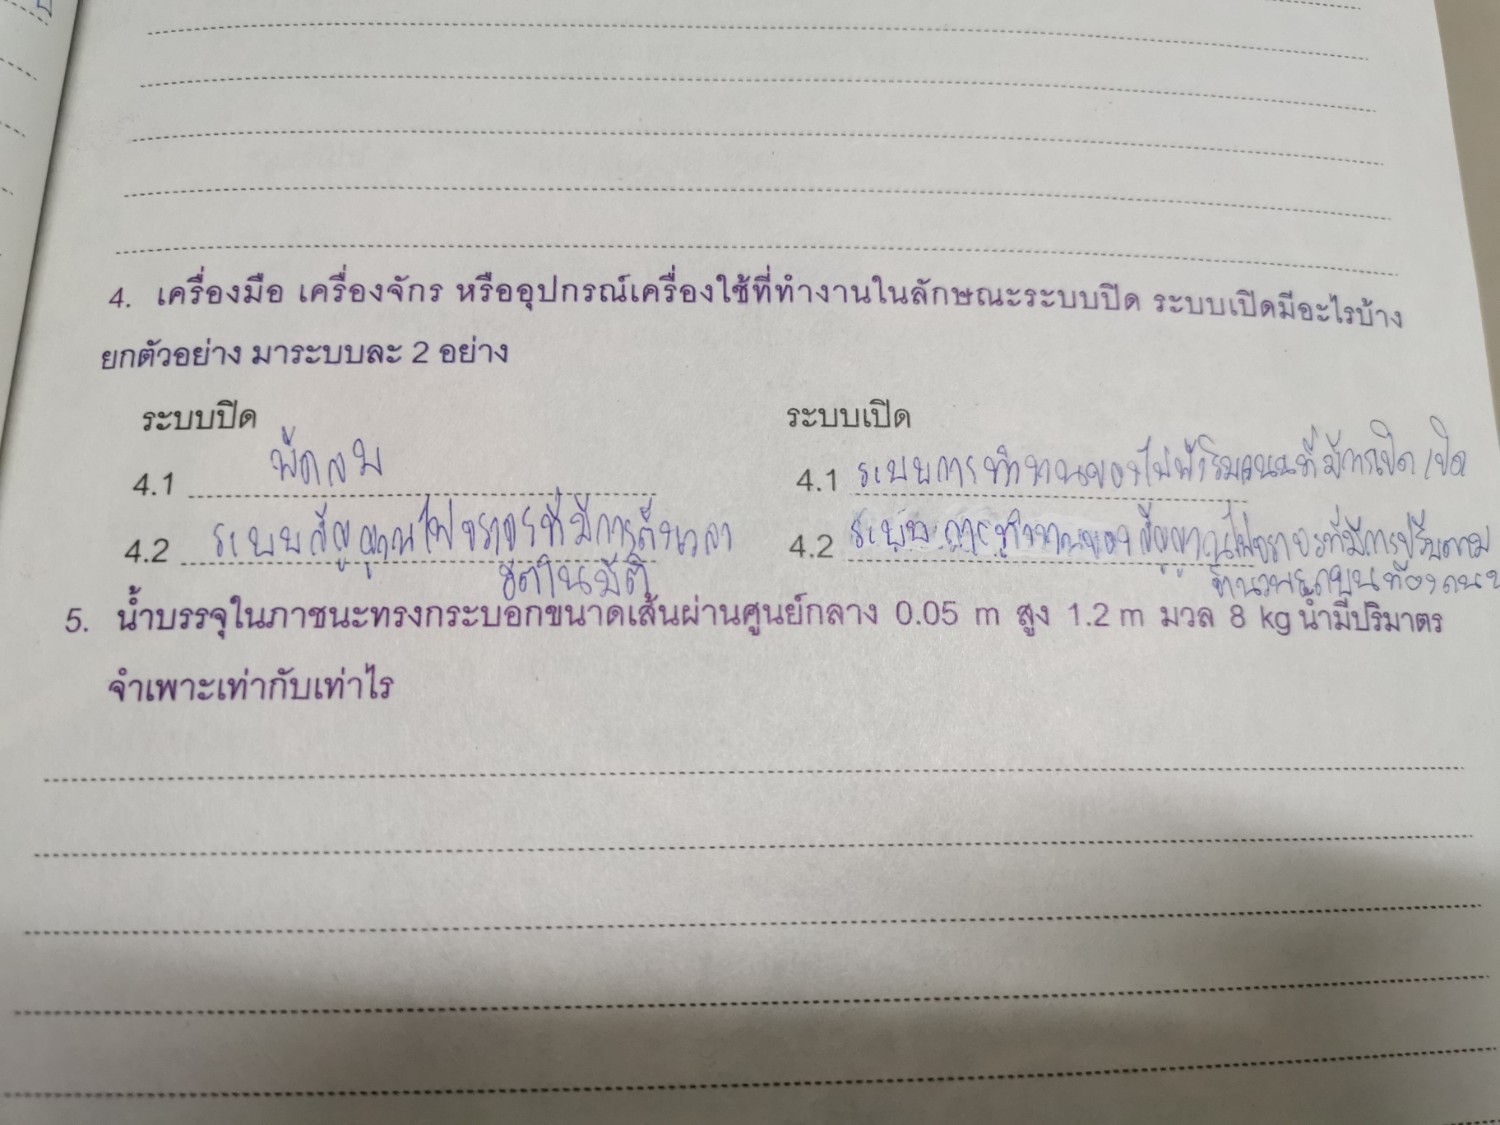 4. เครื่องมือ เครื่องจักร หรืออุปกรณ์เครื่องใช้ที่ทำงานในลักษณะระบบปิด ระบบเปิดมีอะไรบ้าง
ยกตัวอย่าง มาระบบละ 2 อย่าง
ระบบปิด ระบบเปิด
4.1 พัดลม 4.1 ระบบการทำงานของไฟฟ้าริมถนนที่มีการเปิด ปิด
4.2 ระบบสัญญาณไฟจราจรที่มีการตั้งเวลา 4.2 ระบบการทำงานของสัญญาณไฟจราจรที่มีการปรับตาม
อัตโนมัติ บนท้องถนน
5. น้ำบรรจุในภาชนะทรงกระบอกขนาดเส้นผ่านศูนย์กลาง 0.05 m สูง 1.2 m มวล 8 kg น้ำมีปริมาตร
จำเพาะเท่ากับเท่าไร